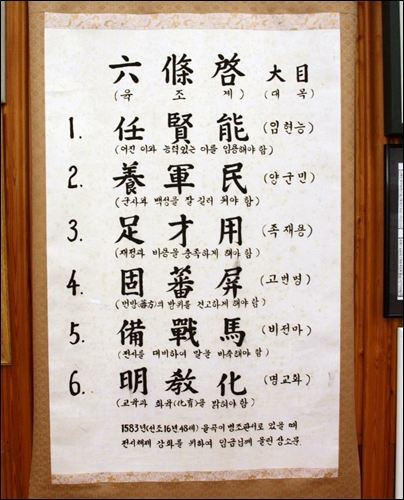 六條啓 大目
(육조계) (대목)
1. 任賢能 (임현능)
(어진 이와 능력있는 이를 임용해야 함)
2. 養軍民 (양군민)
(군사와 백성을 잘 길러 줘야 함)
3. 足才用 (족재용)
(재정과 마음을 충족하게 해야 함)
4. 固蕃屛 (고번병)
(번방(蕃方)의 방위를 견고하게 해야 함)
5. 備戰馬 (비전마)
(전시를 대비하여 말을 비축해야 함)
6. 明敎化 (명교화)
(교육과 화육(化育)을 밝혀야 함)
1583년(선조16년 48세) 율곡이 병조판서로 있을 때
전시체제 강화를 위하여 임금님께 올린 상소문